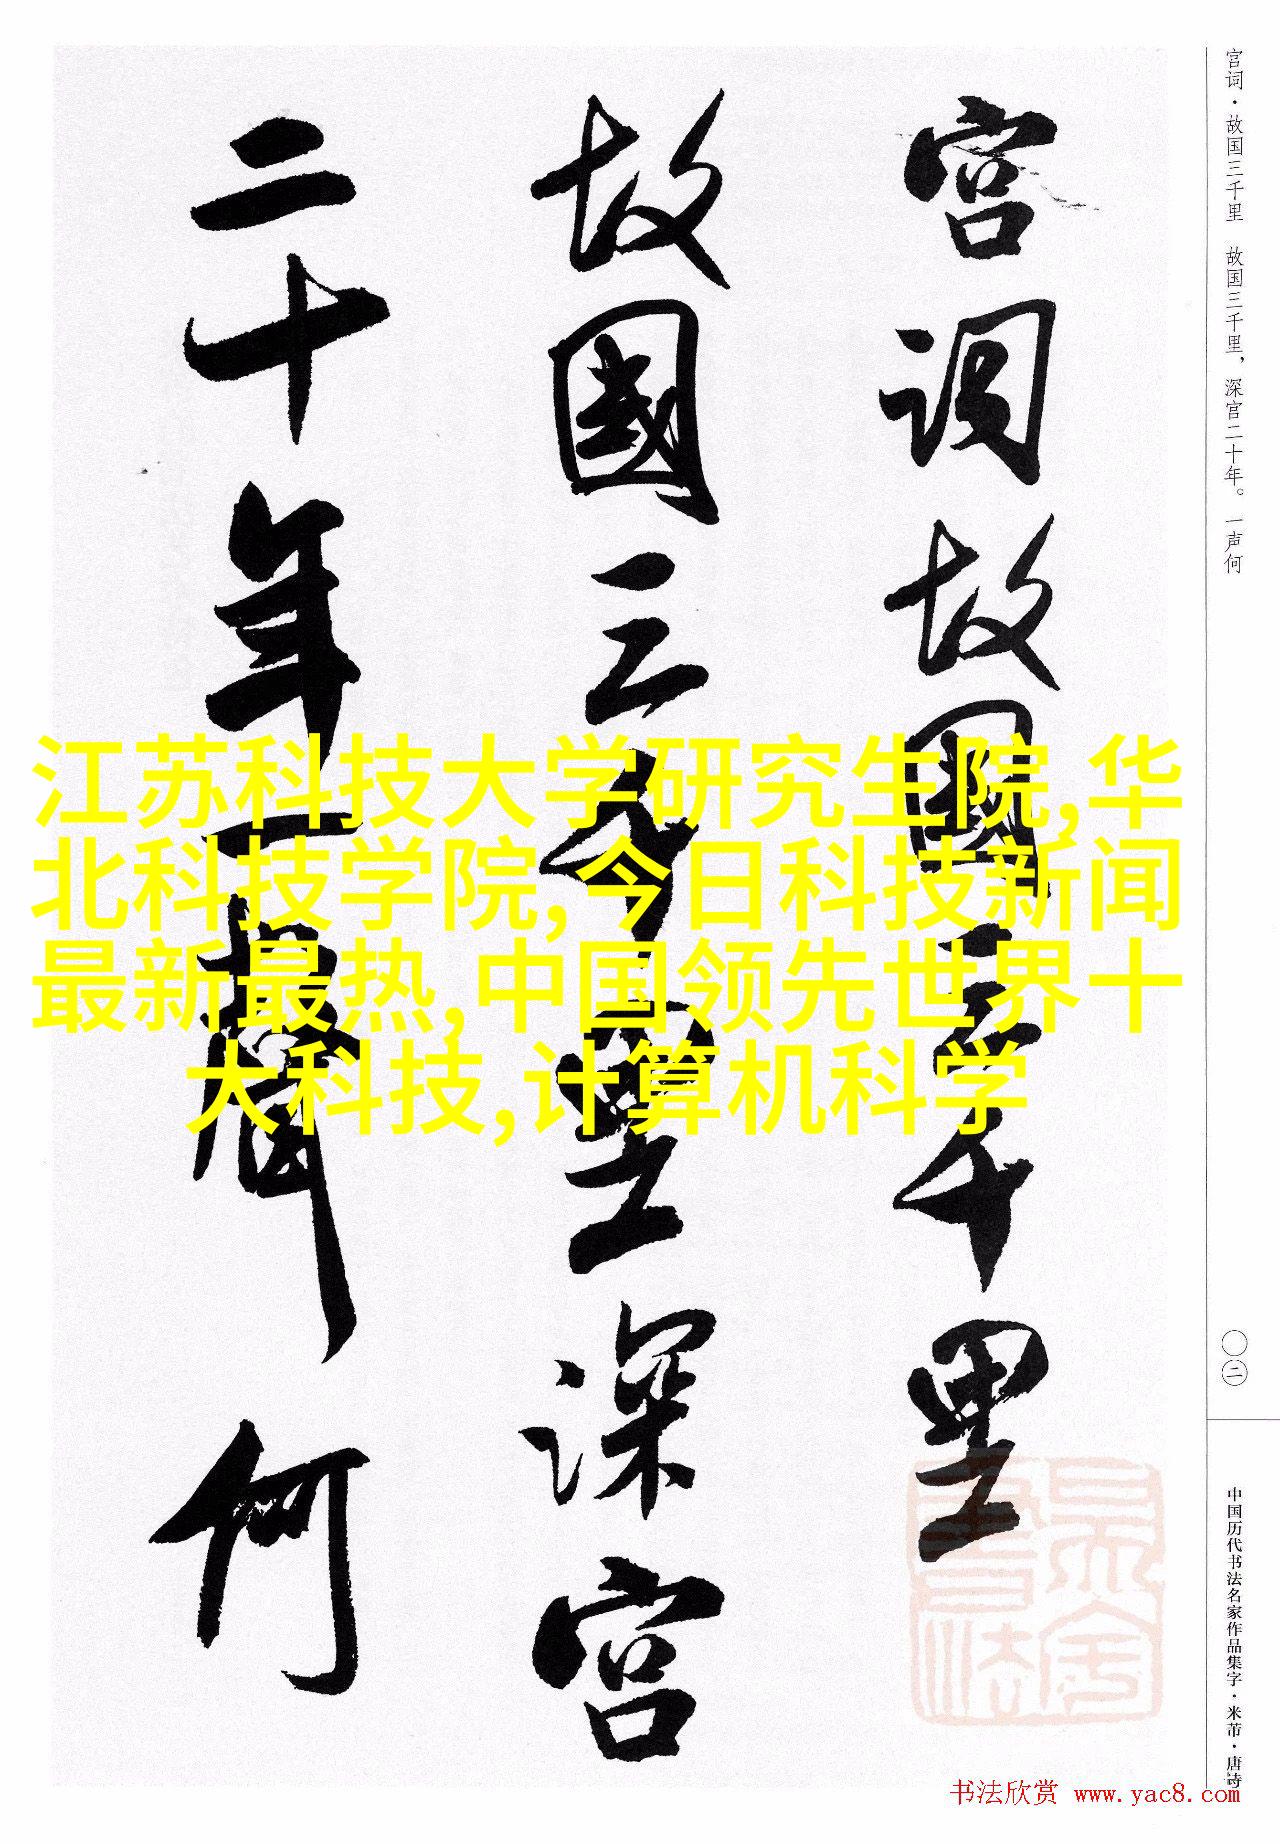 宫词·故国三千里　故国三千里，深宫二十年。一声何
宫词故國三千里
故國三千里深宫
二十年一聲何
江苏科技大学研究生院,华
北科技学院,今日科技新闻
最新最热,中国领先世界十
大科技,计算机科学
〇二
中国历代书法名家作品集字·米芾·唐诗
书法欣赏 www.yac8.com